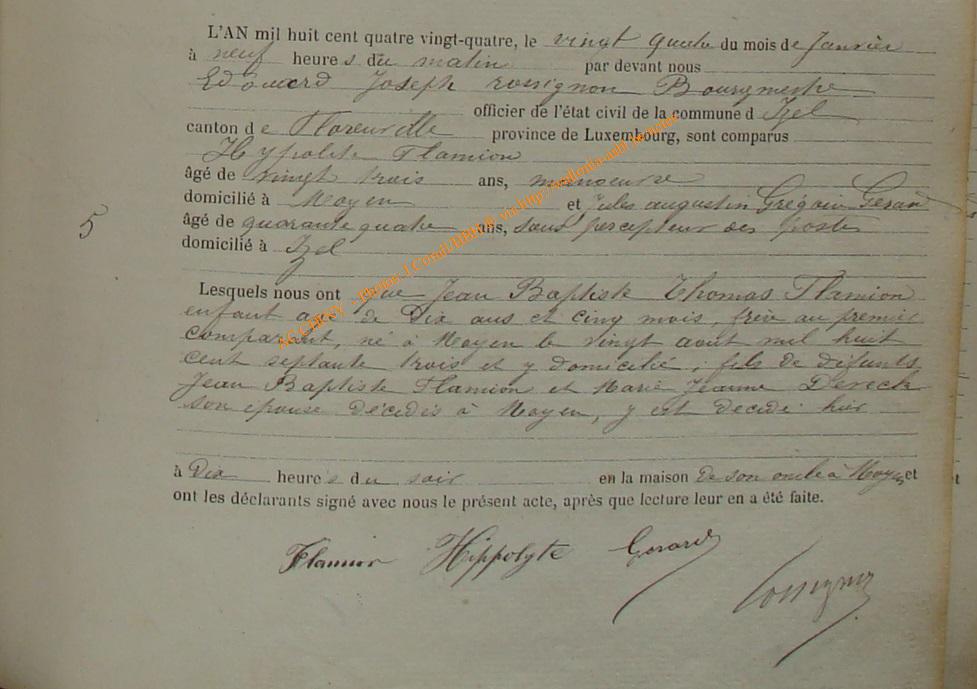 L'AN mil huit cent quatre vingt-quatre, le vingt quatre du mois de Janvier
à neuf heures du matin par devant nous
Edouard Joseph rossignon Bourgmestre
officier de l'état civil de la commune d Izel
canton de Florenville province de Luxembourg, sont comparus
Hypolite Flamion
âgé de vingt trois ans, manoeuvre
domicilié à Moyen et Jules augustin Grégoire Gérard
5
âgé de quarante quatre ans, sous percepteur des postes
domicilié à Izel
Lesquels nous ont que Jean Baptiste Thomas Flamion
enfant agé de Dix ans et cinq mois, frère au premier
comparant, né à Moyen le vingt aout mil huit
cent septante trois et y domicilié, fils de défunts
Jean Baptiste Flamion et Marie Jeanne Dereck
son épouse décédés à Moyen, y est décédé hier
à Dix heures du soir en la maison de son oncle à Moyen et
ont les déclarants signé avec nous le présent acte, après que lecture leur en a été faite.
Flamion Hippolyte Gerard
rossignon